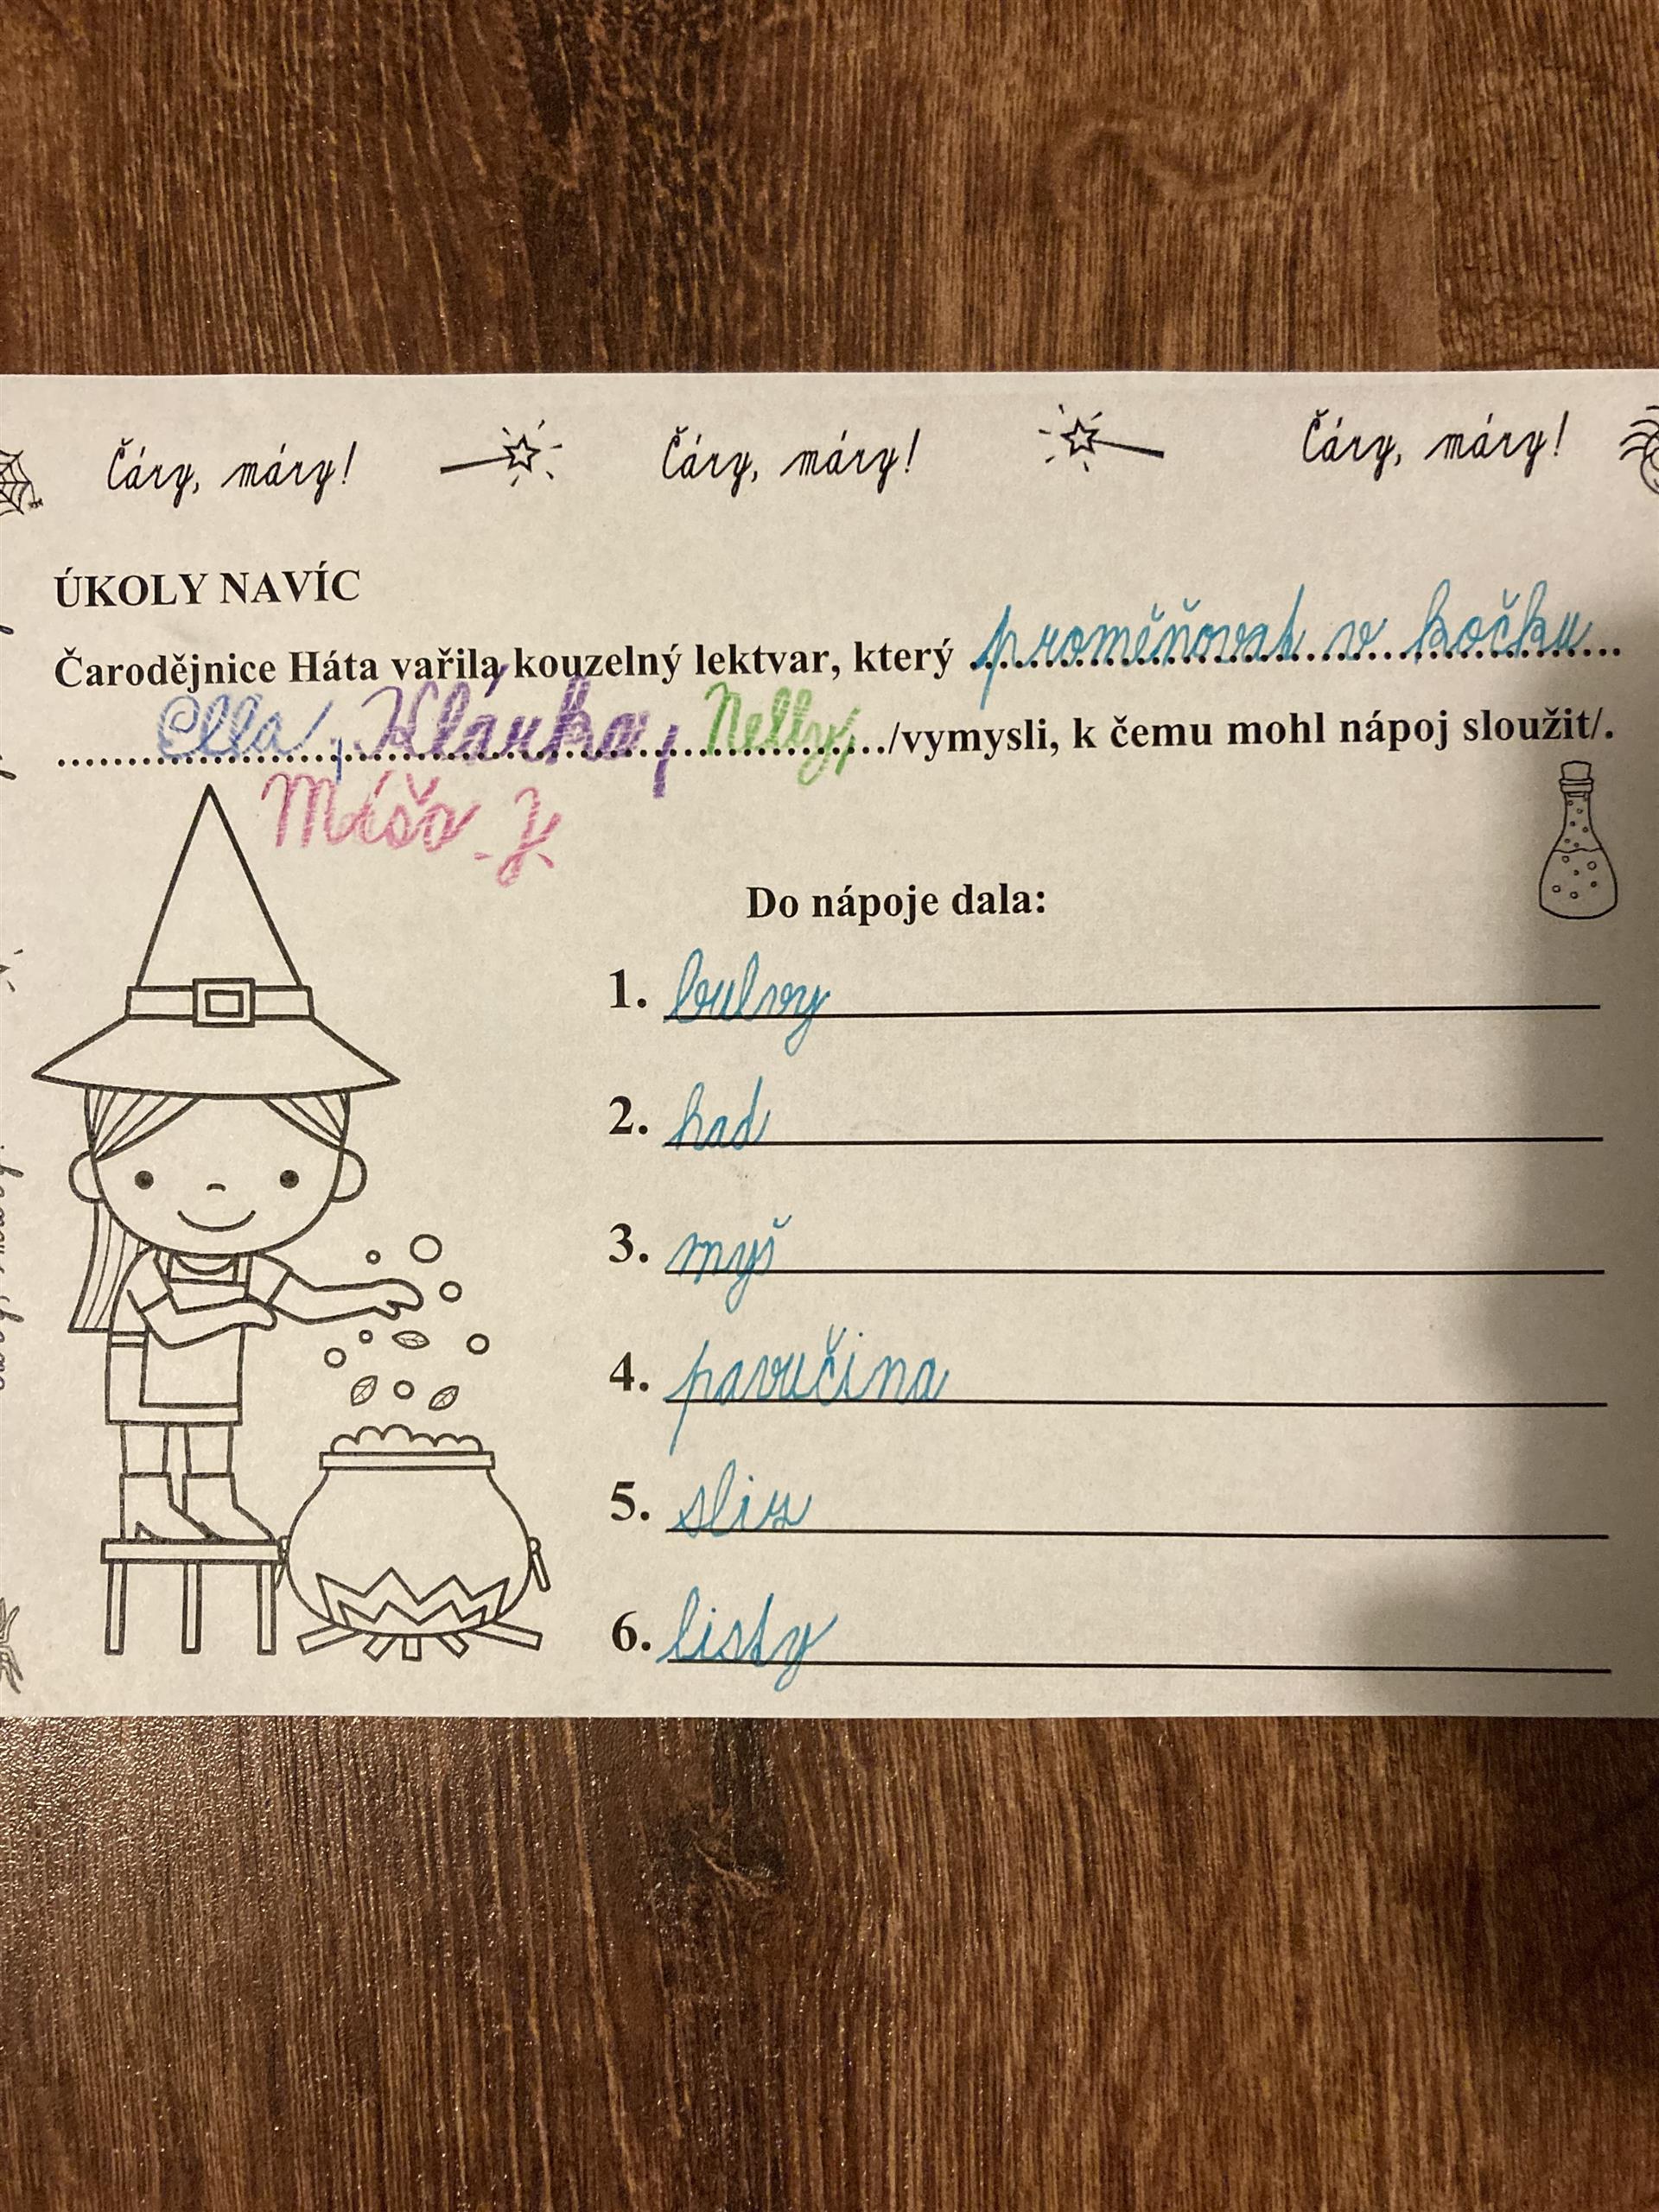 Čáry, máry! Čáry, máry! Čáry, máry!
ÚKOLY NAVÍC
Čarodějnice Háta vařila kouzelný lektvar, který proměňovat v kočku
Ella, Klárka, Nelly, /vymysli, k čemu mohl nápoj sloužit/.
Míša J.
Do nápoje dala:
1. bulvy
2. had
3. myš
4. pavučina
5. sliz
6. listy